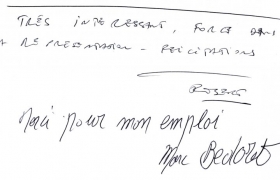 TRÈS INTERESSANT, FORCE DANS
LA REPRESENTATION - FELICITATIONS
Merci pour mon emploi
Marc Bedoret